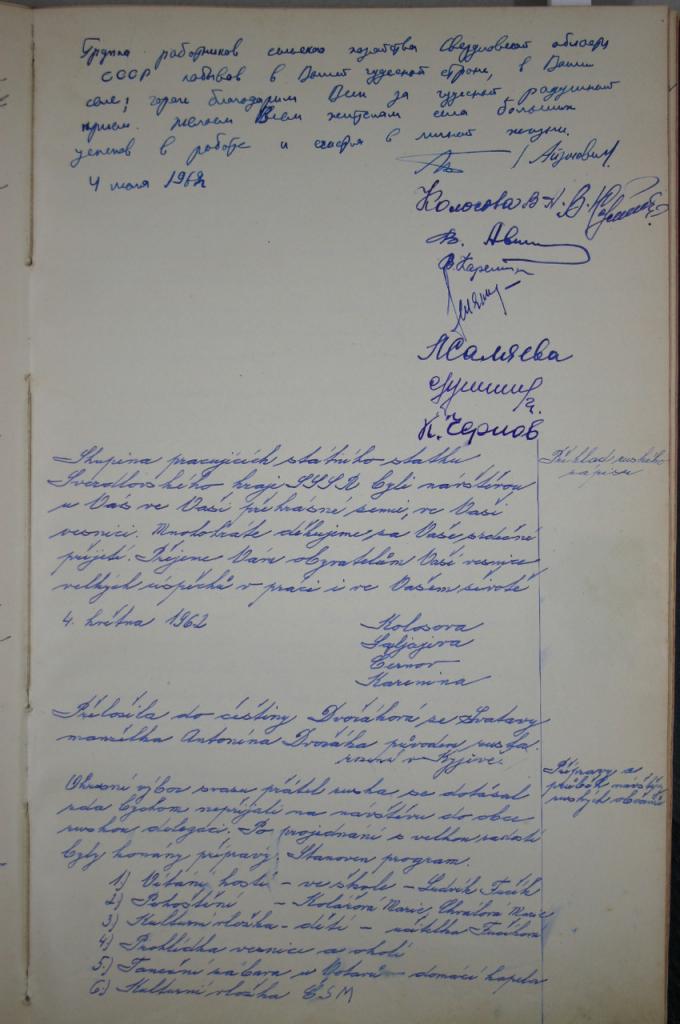 Группа работников сельского хозяйства Свердловской области
СССР побывав в Вашей чудесной стране, в Вашем
селе, горячо благодарим Вас за чудесный радушный
прием. Желаем Всем жителям села больших
успехов в работе и счастья в личной жизни.
4 мая 1962
Колосова В
В.
В. Карелина
Асаляева
К. Чернов
Skupina pracujících státního statku
Sverdlovského kraje SSSR byli návštěvou
u Vás ve Vaší překrásné zemi, ve Vaší
vesnici. Mnohokráte děkujeme za Vaše srdečné
přijetí. Přejeme Vám obyvatelům Vaší vesnice
velkých úspěchů v práci i ve Vašem životě
Překlad ruského
zápisu
4. května 1962
Kolosova
Saljajiva
Černov
Karenina
Přeložila do češtiny Dvořáková ze Svatavy
manželka Antonína Dvořáka původem ruska.
v Kyjivě.
Okresní výbor svazu přátel ruska se dotázal
zda bychom nepřijali na návštěvu do obce
ruskou delegaci. Po projednání s velkou radostí
byly konány přípravy. Stanoven program.
Přípravy a
průběh návštěvy
ruských občanů
1) Vítání hostí – ve škole – Ludvík Fučík
2) Pohoštění – Kolářová Marie, Marie
3) Kulturní vložka – děti – učitelka Fučíková
4) Prohlídka vesnice a okolí
5) Taneční zábava u – domácí kapela
6) Kulturní vložka ČSM